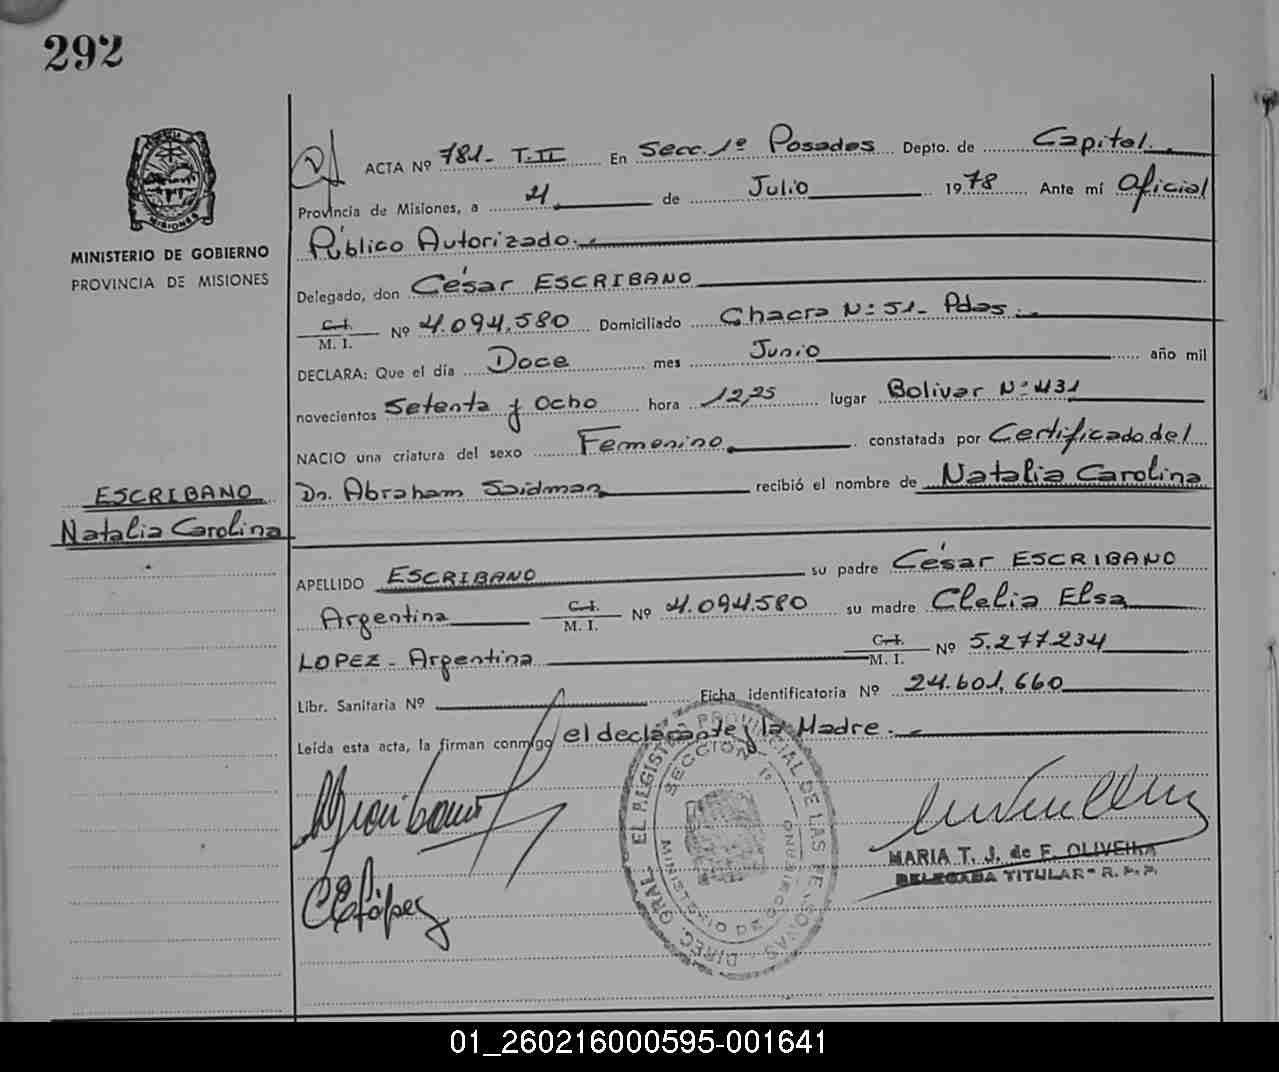 292
MINISTERIO DE GOBIERNO
PROVINCIA DE MISIONES
ACTA Nº 781- T.II En Secc. 1º Posadas Depto. de Capital
Provincia de Misiones, a 4 de Julio 1978 Ante mí Oficial
Público Autorizado.
Delegado, don César ESCRIBANO
C.I. M. I. Nº 4.094.580 Domiciliado Chacra Nº 51- Pdas.
DECLARA: Que el día Doce mes Junio año mil
novecientos Setenta y Ocho hora 12,25 lugar Bolivar Nº 431
NACIO una criatura del sexo Femenino constatada por Certificado del
Dr. Abraham Saidman recibió el nombre de Natalia Carolina
ESCRIBANO
Natalia Carolina
APELLIDO ESCRIBANO su padre César ESCRIBANO
Argentina C.I. M. I. Nº 4.094.580 su madre Clelia Elsa
LOPEZ - Argentina C.I. M. I. Nº 5.277.234
Libr. Sanitaria Nº Ficha identificatoria Nº 24.601.660
Leída esta acta, la firman conmigo el declarante y la Madre.
DIREC. GRAL. EL REGISTRO PROVINCIAL DE LAS PERSONAS
SECCION 1º
MINISTERIO DE GOBIERNO
C E López
MARIA T. J. de F. OLIVEIRA
DELEGADA TITULAR - R. P. P.
01_260216000595-001641